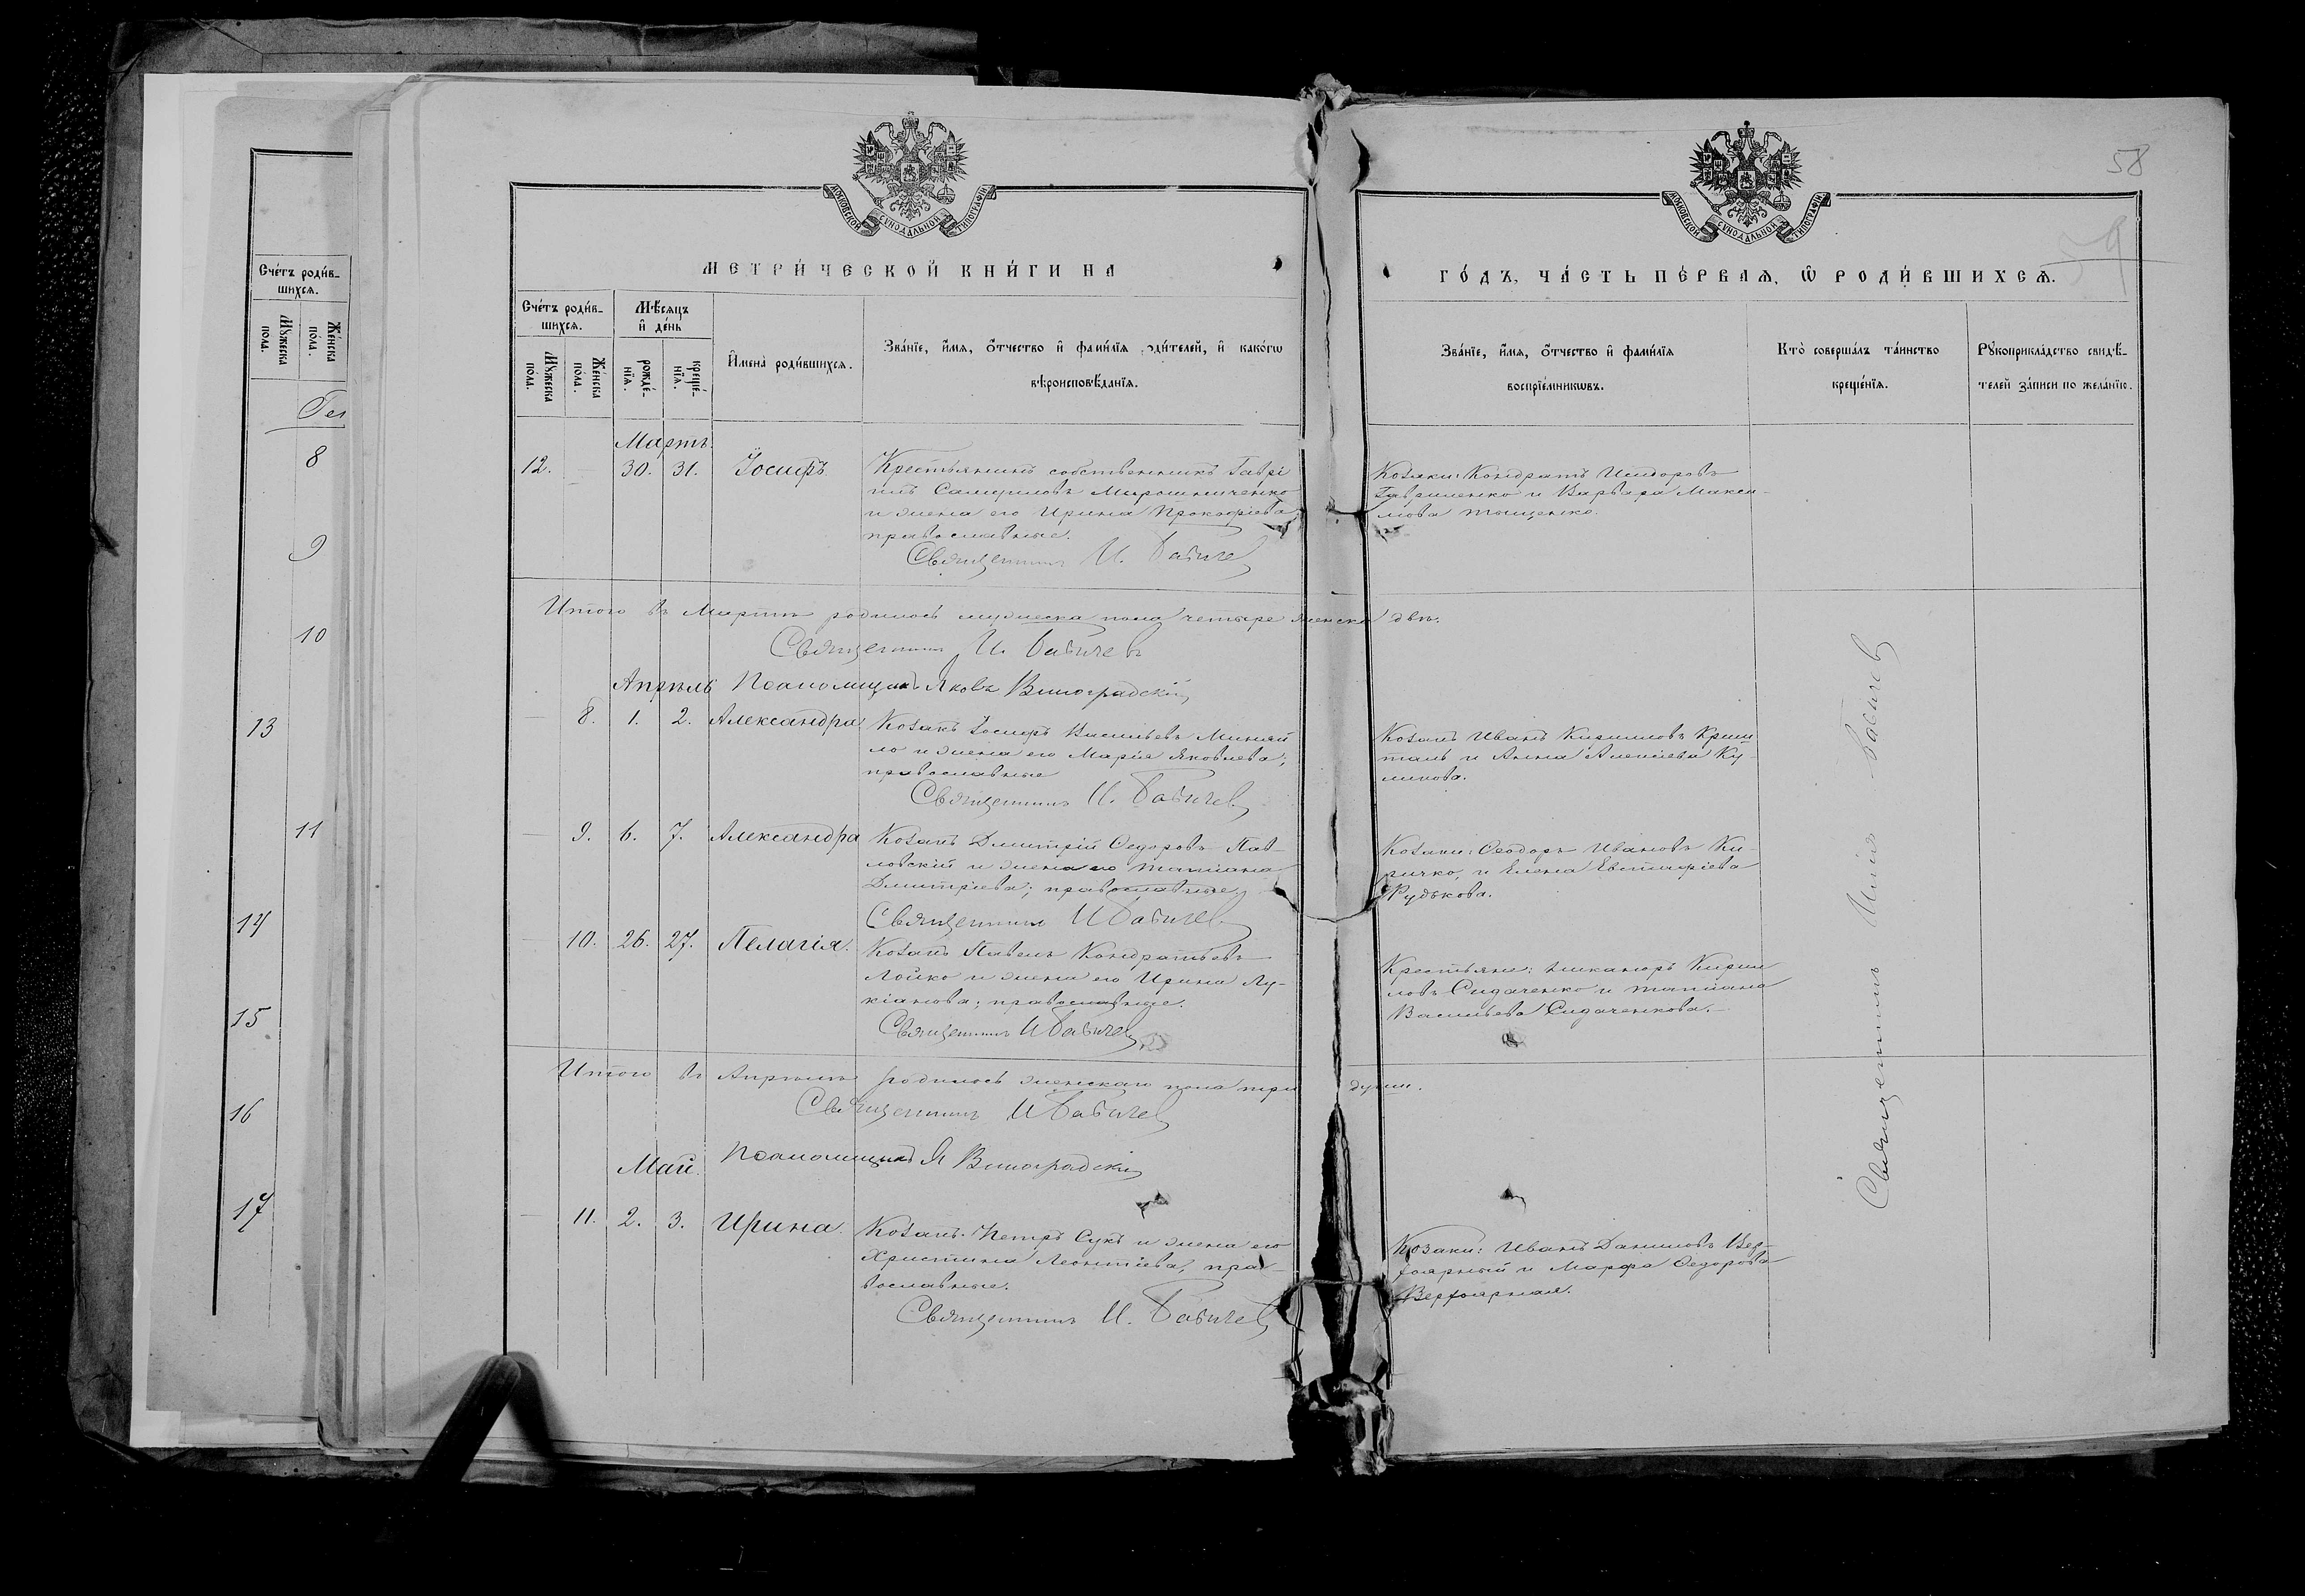 58
59
МОСКОВСКОЙ СУНОДАЛЬНОЙ ТИПОГРАФІИ
МОСКОВСКОЙ СУНОДАЛЬНОЙ ТИПОГРАФІИ
Сче́тъ роди́в-
шихсѧ.
Мꙋ́жеска по́ла.
Же́нска по́ла.
8
9
10
13
11
14
15
16
17
МЕТРИ́ЧЕСКОЙ КНИ́ГИ НА
ГО́ДЪ, ЧА́СТЬ ПЕ́РВАЯ, Ѡ҆ РОДИ́ВШИХСЯ.
Сче́тъ роди́в-
шихсѧ.
Мꙋ́жеска по́ла.
Же́нска по́ла.
Мѣ́сяцъ
и҆ де́нь
рожде́-
нїѧ.
креще́-
нїѧ.
И҆мена̀ роди́вшихсѧ.
Зва́нїе, и҆́мѧ, ѻ҆́тчество и҆ фами́лїѧ роди́телей, и҆ како́гѡ
вѣроисповѣ́данїѧ.
Зва́нїе, и҆́мѧ, ѻ҆́тчество и҆ фами́лїѧ
воспрїе́мникѡвъ.
Кто̀ соверша́лъ та́инство
креще́нїѧ.
Рꙋкоприкла́дство свидѣ́-
телей за́писи по жела́нїю.
Мартъ.
12. 30. 31. Іосифъ
Крестьянинъ собственникъ Гаврі
илъ Самуиловъ Мирошниченко
и жена его Ирина Прокофіева
православные.
Священникъ И. Бабичев
Козаки: Кондратъ Исидоровъ
Гавриленко и Варвара Макси-
мова Тищенко.
Итого въ Мартѣ родилось мужеска пола четыре женска двѣ.
Священникъ И. Бабичевъ
Апрѣль Псаломщикъ Яковъ Виноградскій
8. 1. 2. Александра
Козакъ Іосифъ Васильевъ Миняй
ло и жена его Марія Яковлева;
православные
Священникъ И. Бабичев
Козакъ Иванъ Кирилловъ
и Анна Алексіева Ку-
ликова.
9. 6. 7. Александра
Козакъ Дмитрій Федоровъ Пав-
ловскій и жена его Татіана
Дмитріева; православные
Священникъ И Бабичев
Козаки: Феодоръ Ивановъ Ки-
ричко, и Елена Евстафіева
Рудькова.
10. 26. 27. Пелагія.
Козакъ Павелъ Кондратьевъ
Лойко и жена его Ирина Лу-
кіанова; православные.
Священникъ И Бабичев
Крестьяне: Никаноръ Кирил
ловъ Сидаченко и Татіана
Васильева Сидаченкова.
Итого въ Апрѣлѣ родилось женскаго пола три души.
Священникъ И Бабичев
Май. Псаломщикъ Я Виноградскій
11. 2. 3. Ирина.
Козакъ Петръ Сукъ и жена его
Христина Леонтіева, пра-
вославные.
Священникъ И. Бабичев
Козаки: Иванъ Даниловъ
и Марфа Федорова
Священникъ Бабичев